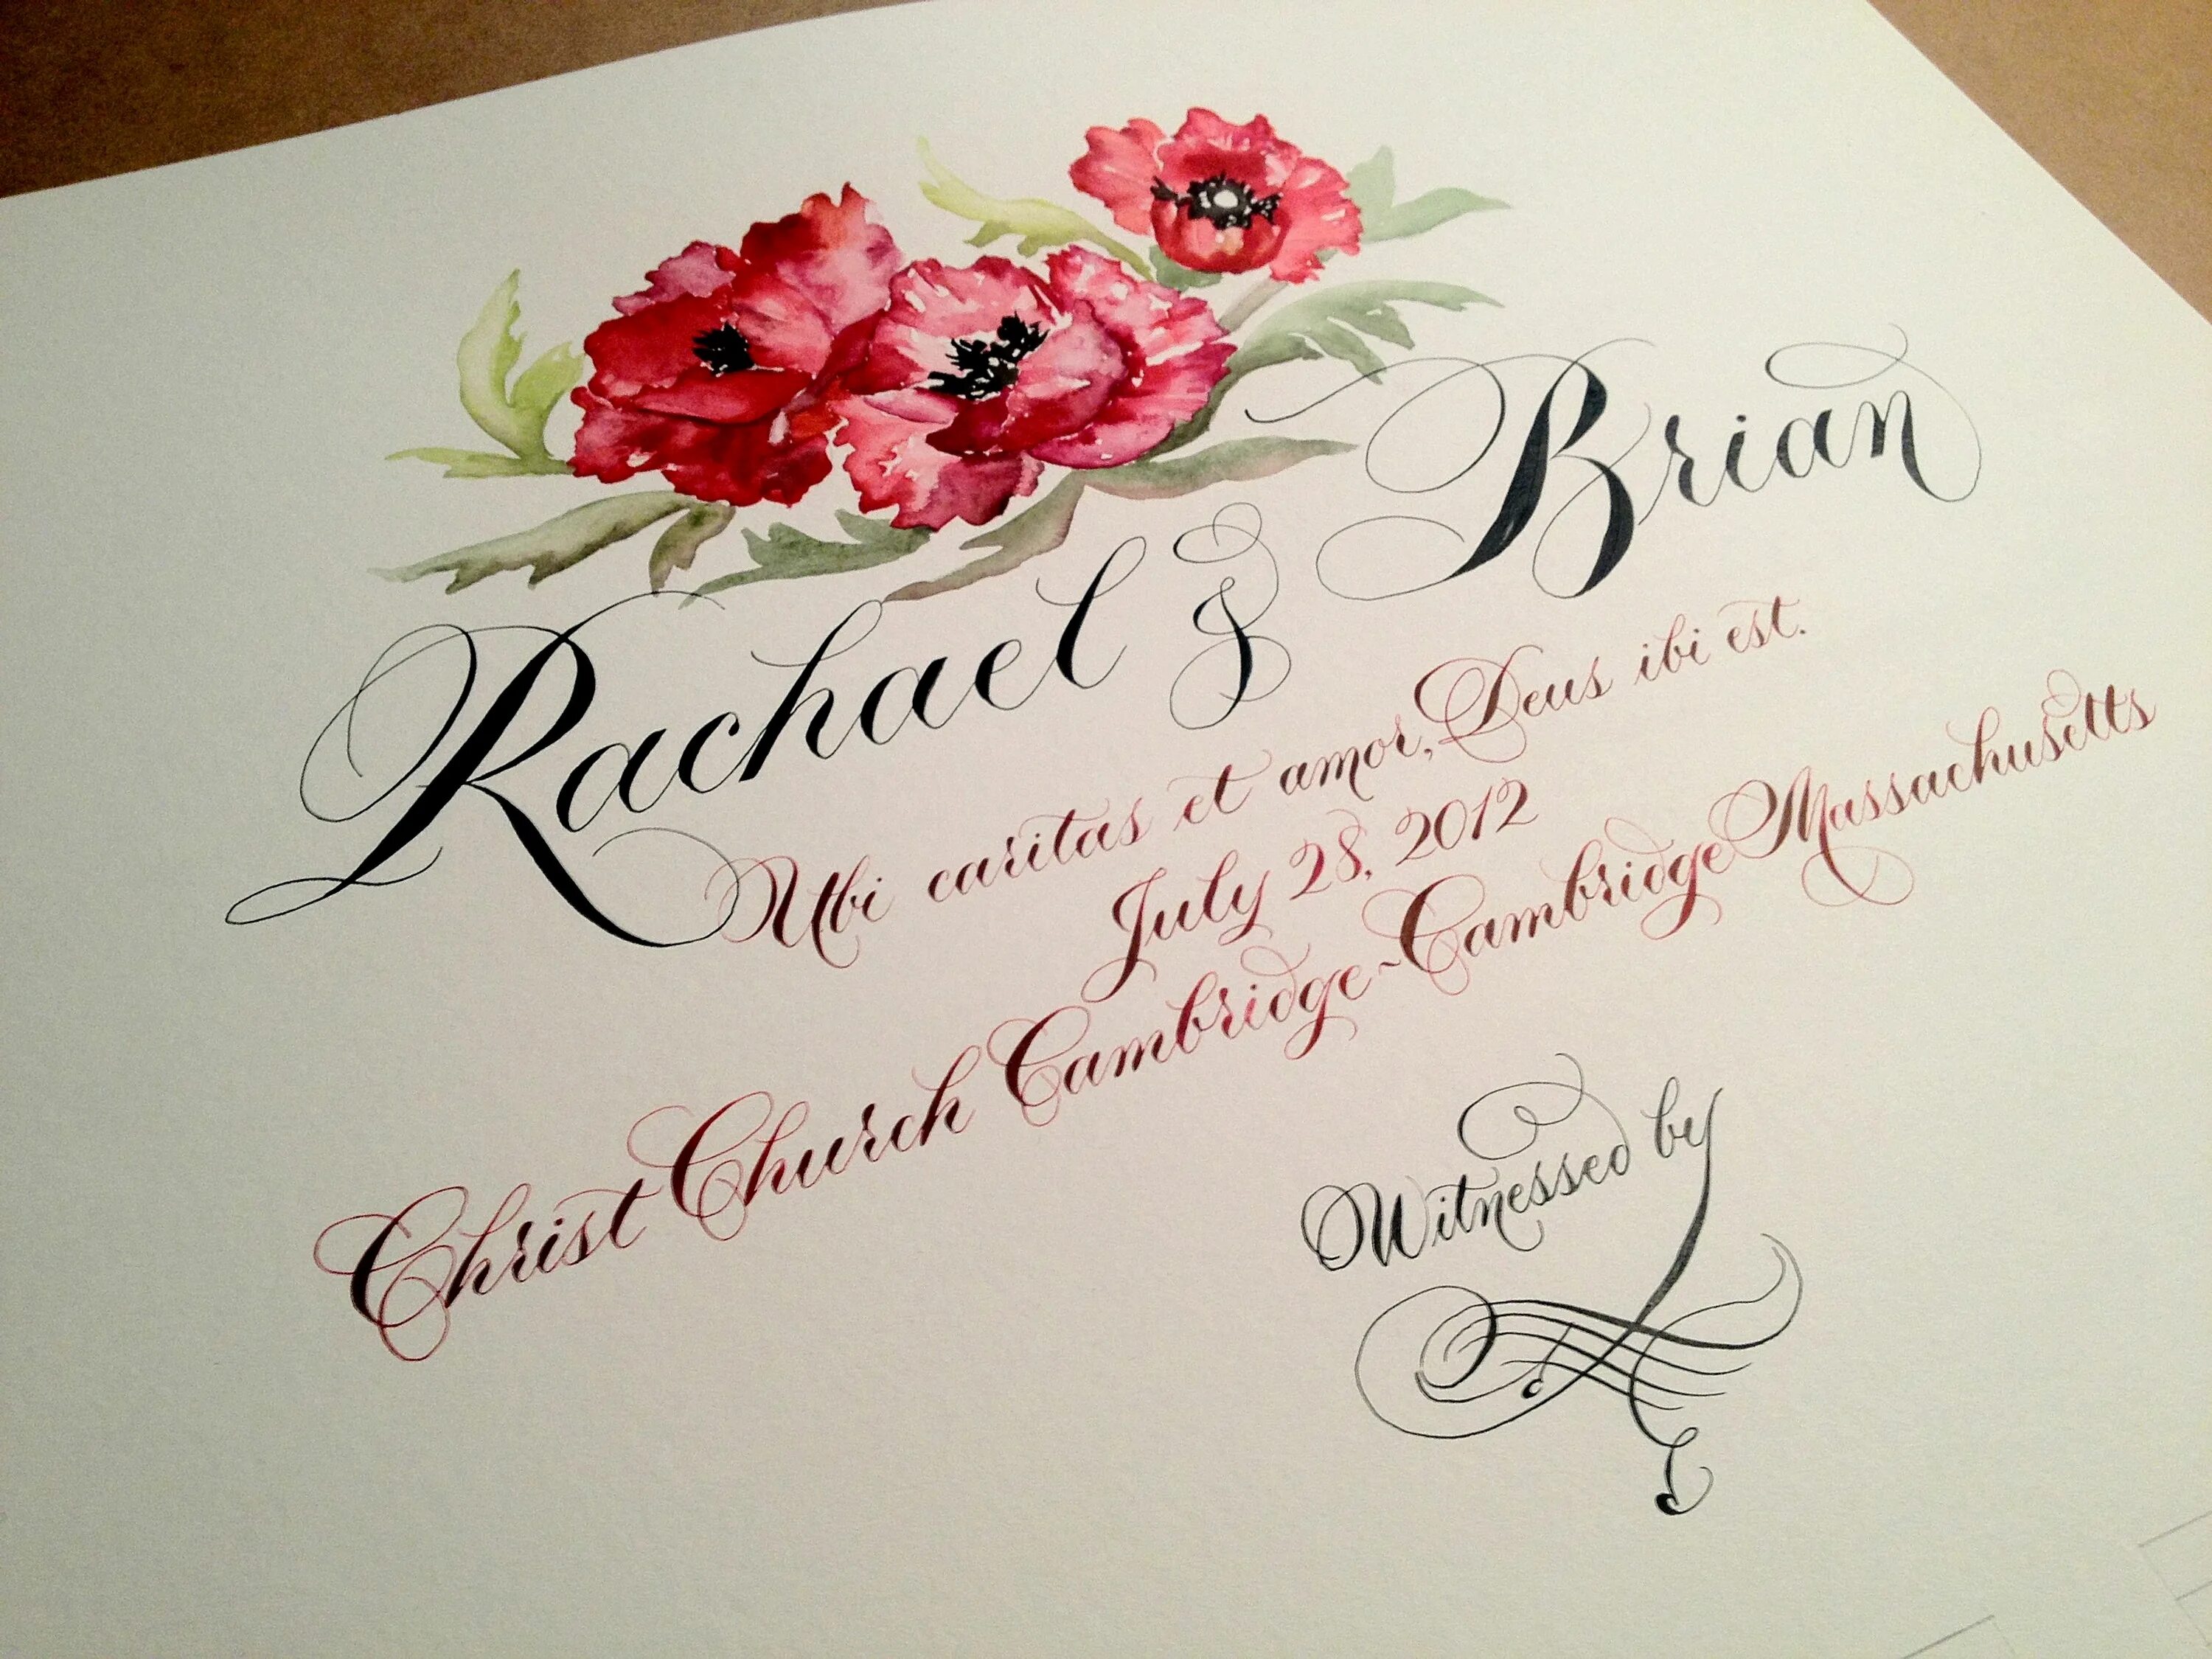 Rachael & Brian
Ubi caritas et amor, Deus ibi est.
July 28, 2012
Christ Church Cambridge ~ Cambridge Massachusetts
Witnessed by